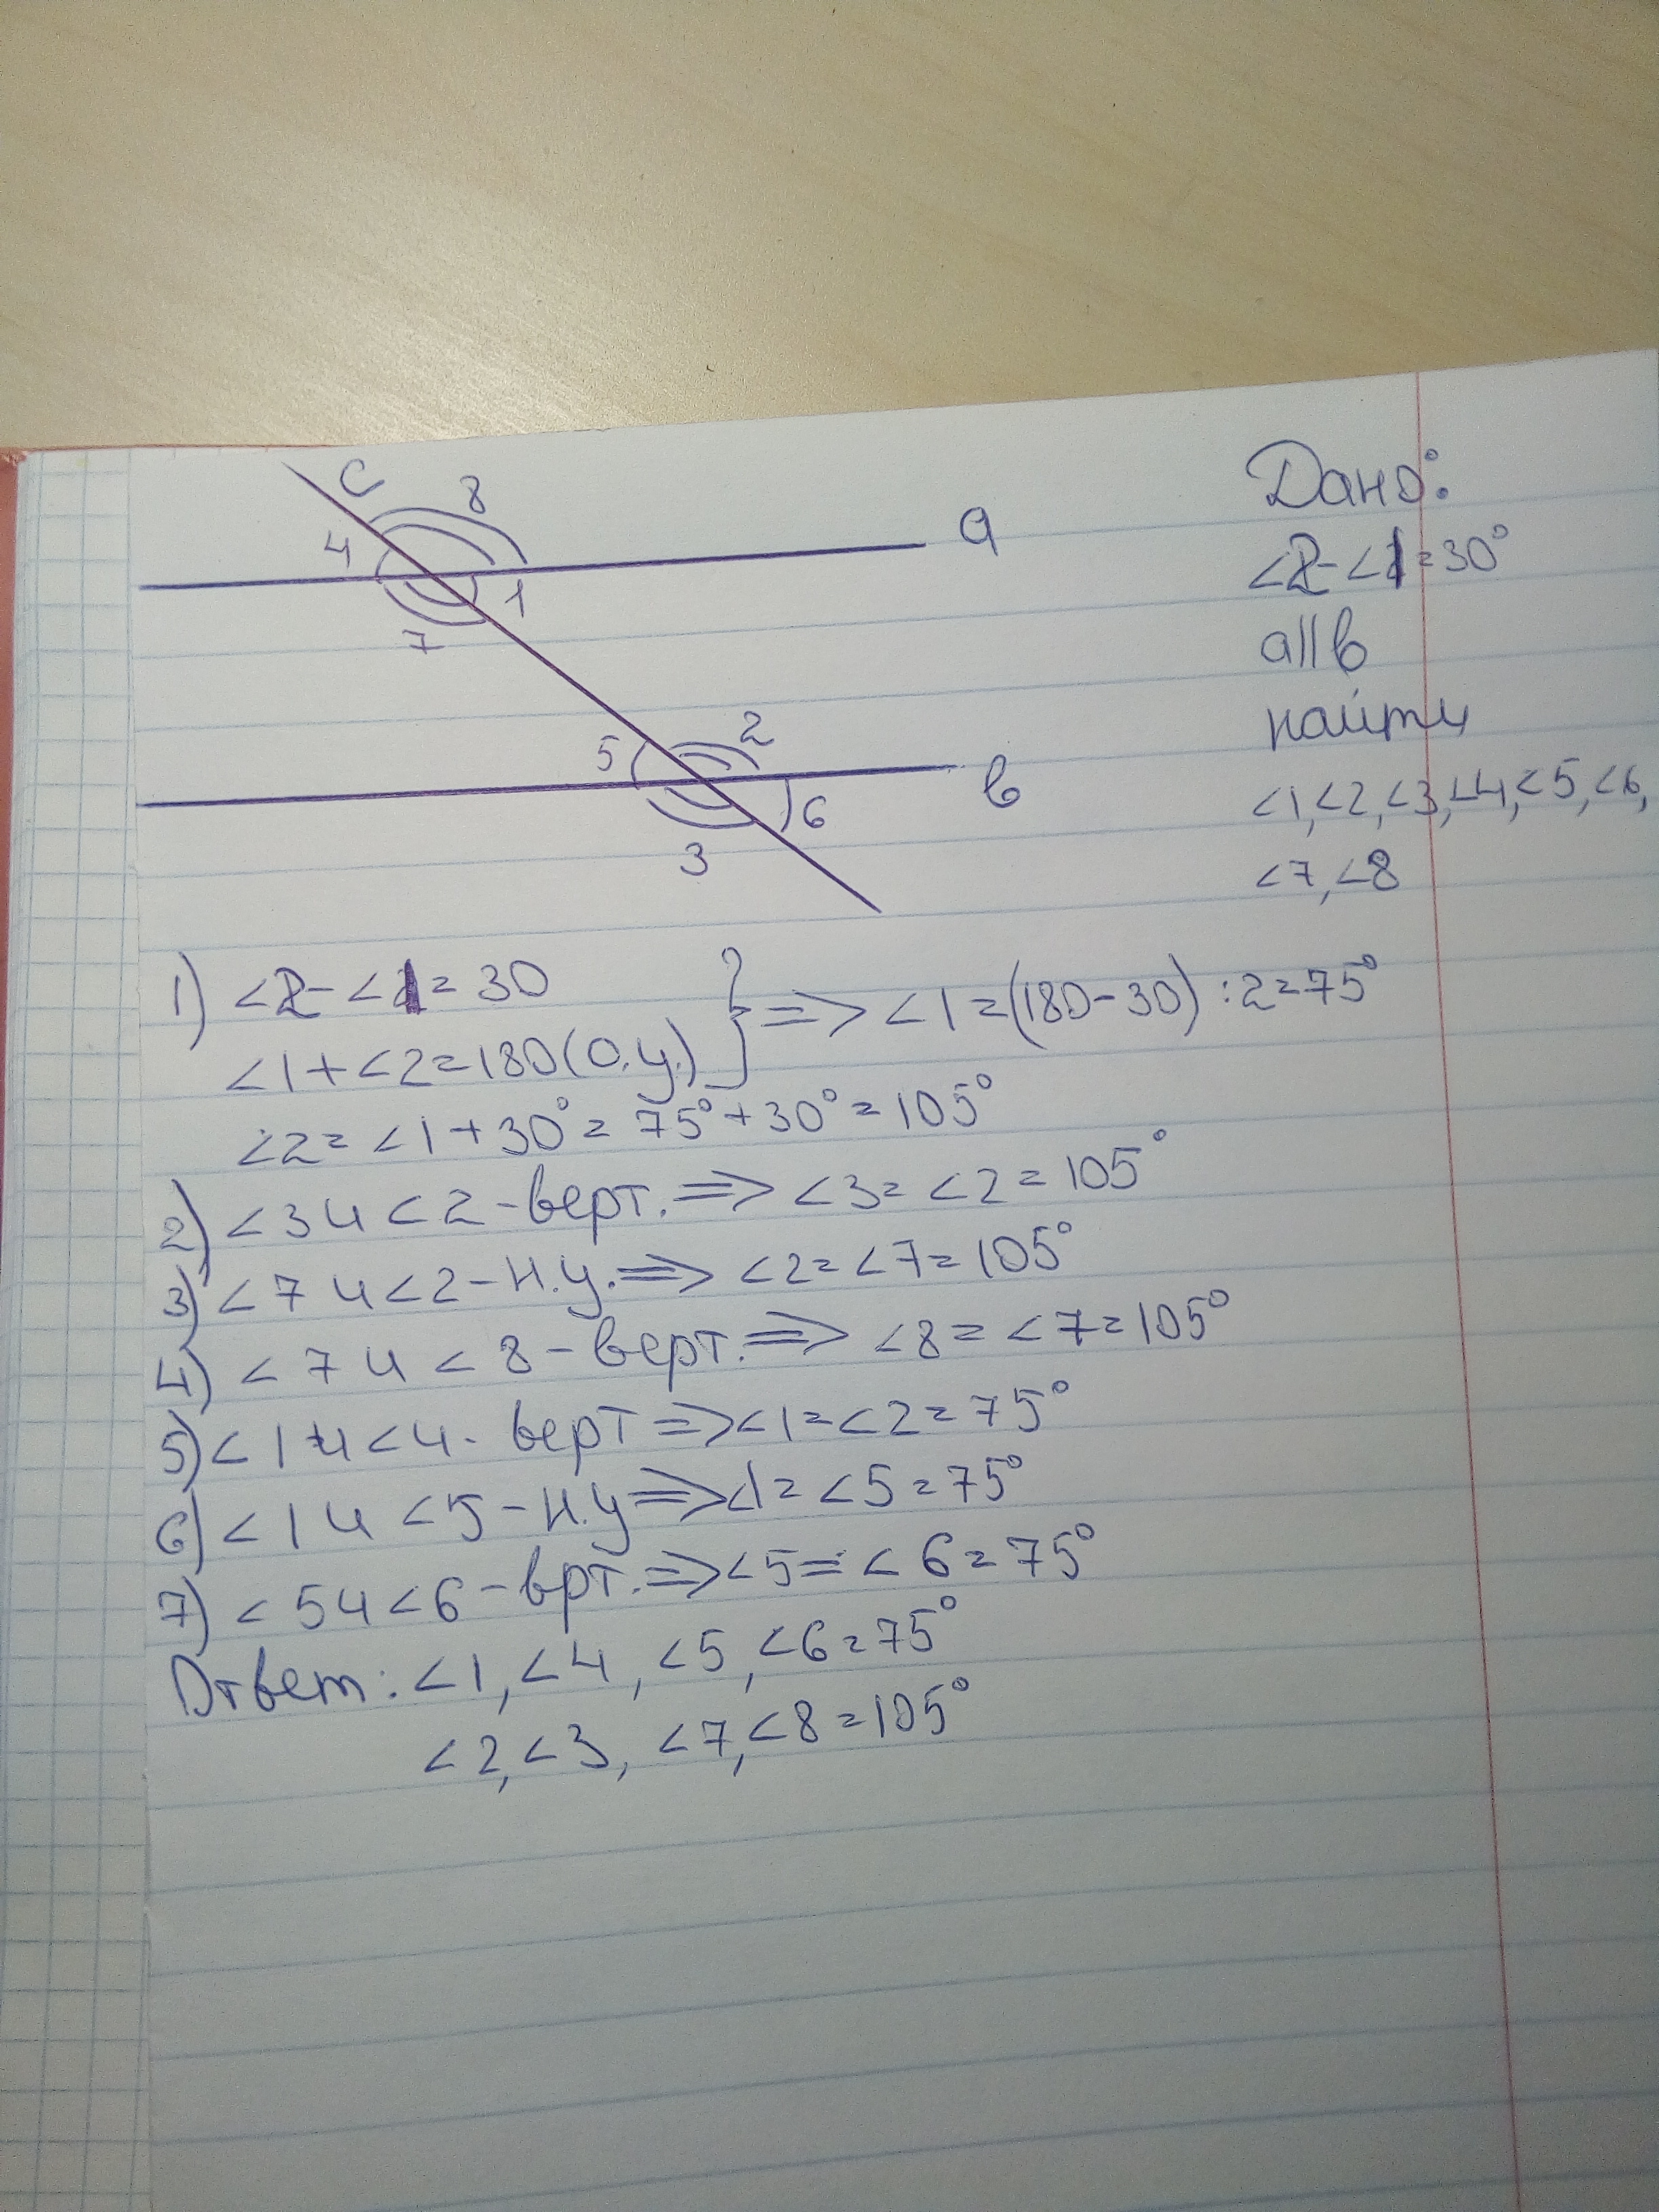 с
8
а
4
1
7
5
2
в
6
3
Дано:
<2-<1=30°
а||в
найти
<1,<2,<3,<4,<5,<6,
<7,<8
1) <2-<1=30
<1+<2=180(О.У.) } => <1=(180-30):2=75°
<2=<1+30°=75°+30°=105°
2) <3 и <2-верт. => <3=<2=105°
3) <7 и <2-Н.У. => <2=<7=105°
4) <7 и <8-верт. => <8=<7=105°
5) <1 и <4- верт => <1=<2=75°
6) <1 и <5-Н.У => <1=<5=75°
7) <5 и <6-врт. => <5=<6=75°
Ответ: <1,<4,<5,<6=75°
<2,<3,<7,<8=105°